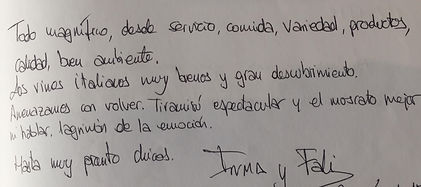 Todo magnífico, desde servicio, comida, variedad, productos,
calidad, buen ambiente.
Los vinos italianos muy buenos y gran descubrimiento.
Amenazamos con volver. Tiramisú espectacular y el moscato mejor
ni hablar, lagrimón de la emoción.
Hasta muy pronto chicos.
INMA y Fali